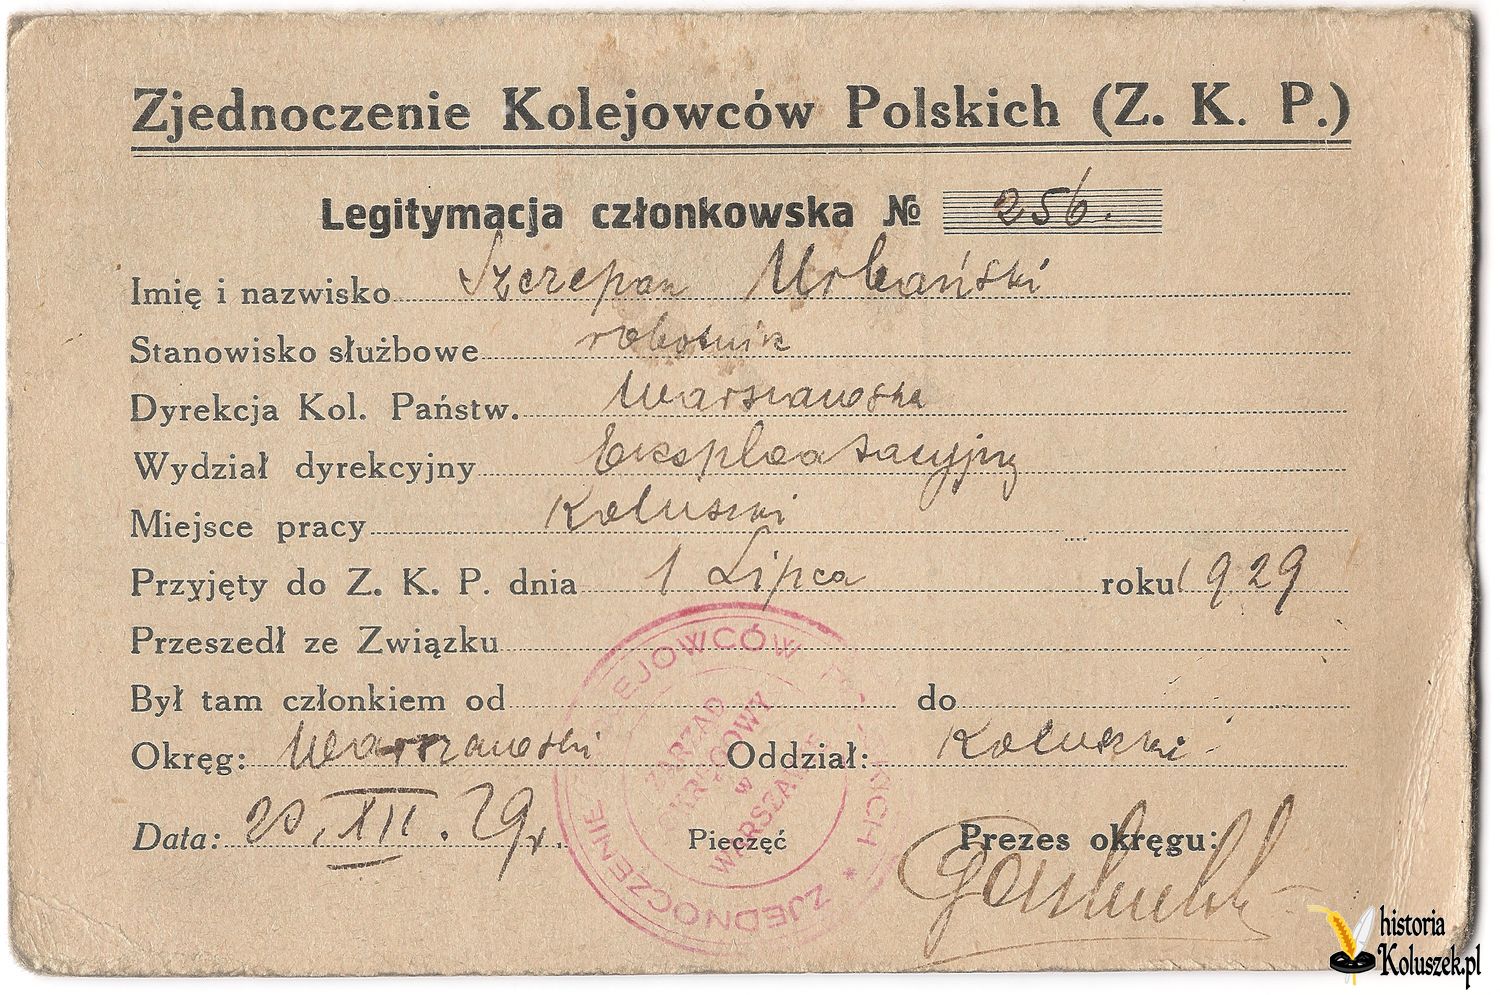 Zjednoczenie Kolejowców Polskich (Z. K. P.)
Legitymacja członkowska № 256.
Imię i nazwisko Szczepan Urbański
Stanowisko służbowe robotnik
Dyrekcja Kol. Państw. Warszawska
Wydział dyrekcyjny Eksploatacyjny
Miejsce pracy Koluszki
Przyjęty do Z. K. P. dnia 1 Lipca roku 1929
Przeszedł ze Związku
Był tam członkiem od do
Okręg: Warszawski Oddział: Koluszki
Data: 20. XII. 29 r. Pieczęć Prezes okręgu:
ZJEDNOCZENIE KOLEJOWCÓW POLSKICH *
ZARZĄD
OKRĘGOWY
w
WARSZAWIE
historia
Koluszek.pl